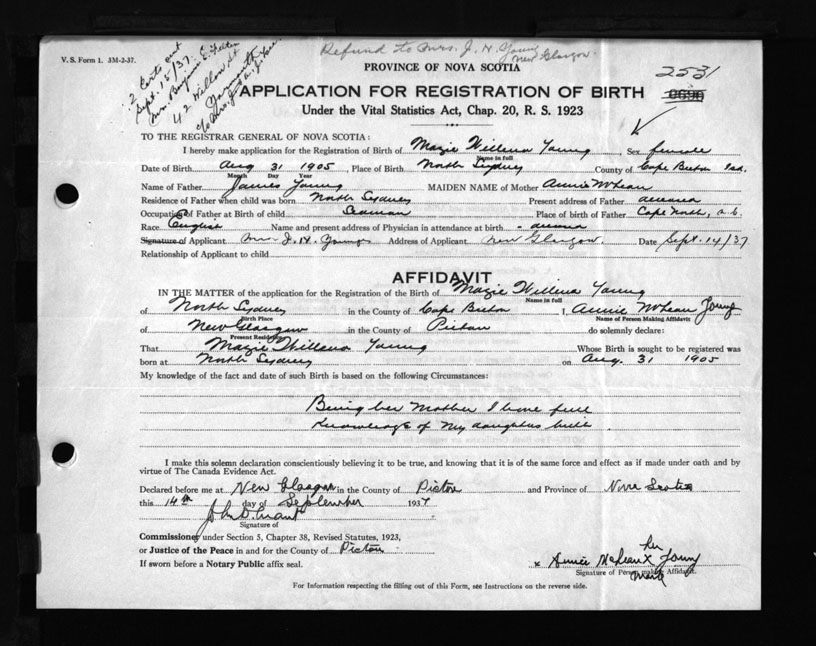 Refund to Mrs. J. H. Young
New Glasgow.
V. S. Form 1. 3M-2-37.
2 Certs out
Sept. 15/37.
Mrs. Benjamin E.
42 Willow St
Yarmouth
PROVINCE OF NOVA SCOTIA
2531
APPLICATION FOR REGISTRATION OF BIRTH
Under the Vital Statistics Act, Chap. 20, R. S. 1923
TO THE REGISTRAR GENERAL OF NOVA SCOTIA:
I hereby make application for the Registration of Birth of Mazie Willena Young Sex female
Name in full
Date of Birth Aug 31 1905, Place of Birth North Sydney County of Cape Breton
Month Day Year
Name of Father James Young MAIDEN NAME of Mother Annie McLean
Residence of Father when child was born North Sydney Present address of Father deceased
Occupation of Father at Birth of child Seaman Place of birth of Father Cape North, C.B.
Race English Name and present address of Physician in attendance at birth
Signature of Applicant Mrs J. H. Young Address of Applicant New Glasgow. Date Sept. 14/37
Relationship of Applicant to child
AFFIDAVIT
IN THE MATTER of the application for the Registration of the Birth of Mazie Willena Young
Name in full
of North Sydney in the County of Cape Breton I, Annie McLean Young
Birth Place Name of Person Making Affidavit
of New Glasgow in the County of Pictou do solemnly declare:
Present Residence
That Mazie Willena Young Whose Birth is sought to be registered was
born at North Sydney on Aug. 31 1905
My knowledge of the fact and date of such Birth is based on the following Circumstances:
Being her Mother I have full
Knowledge of my daughters birth
I make this solemn declaration conscientiously believing it to be true, and knowing that it is of the same force and effect as if made under oath and by
virtue of The Canada Evidence Act.
Declared before me at New Glasgow in the County of Pictou and Province of Nova Scotia
this 14th day of September 1937
John D. Grant
Signature of
Commissioner under Section 5, Chapter 38, Revised Statutes, 1923,
or Justice of the Peace in and for the County of Pictou
If sworn before a Notary Public affix seal.
her
x Annie McLean X Young
Signature of Person making Affidavit.
Mark
For Information respecting the filling out of this Form, see Instructions on the reverse side.